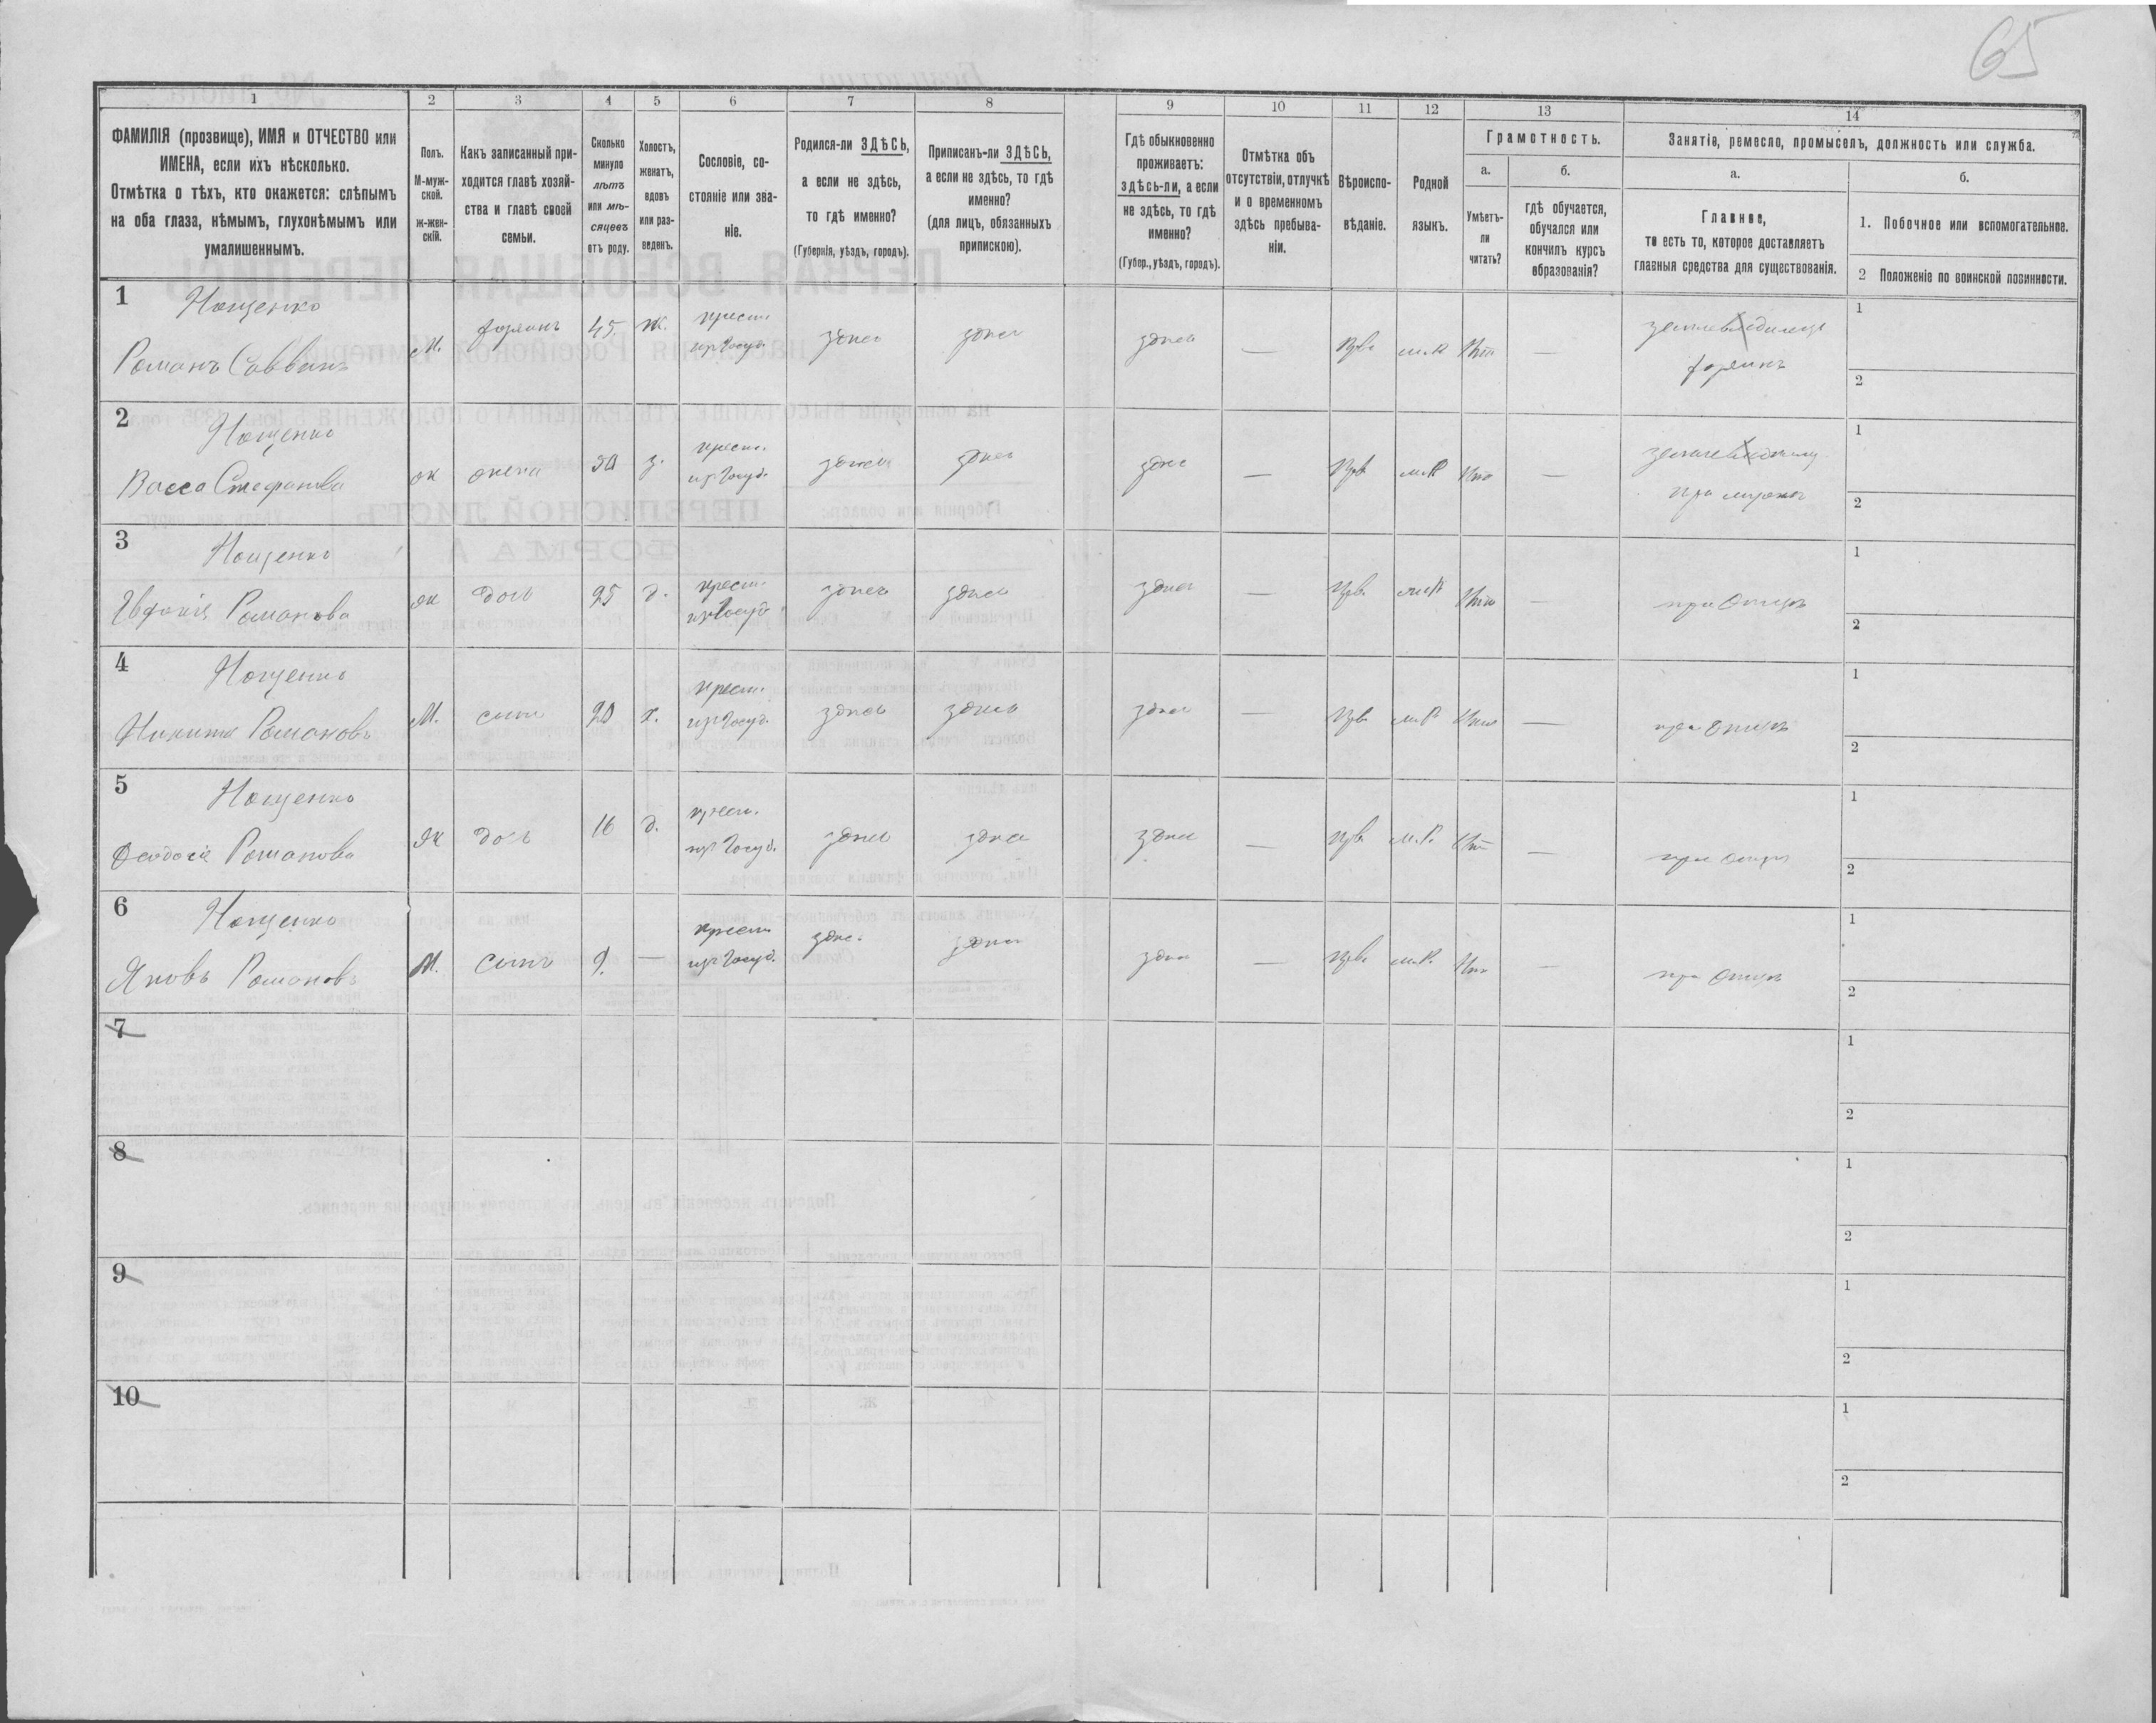 65
1 2 3 4 5 6 7 8 9 10 11 12 13 14
ФАМИЛІЯ (прозвище), ИМЯ и ОТЧЕСТВО или
ИМЕНА, если ихъ нѣсколько.
Отмѣтка о тѣхъ, кто окажется: слѣпымъ
на оба глаза, нѣмымъ, глухонѣмымъ или
умалишеннымъ.
Полъ.
М-муж-
ской.
ж-жен-
скій.
Какъ записанный при-
ходится главѣ хозяй-
ства и главѣ своей
семьи.
Сколько
минуло
лѣтъ
или мѣ-
сяцевъ
отъ роду.
Холостъ,
женатъ,
вдовъ
или раз-
веденъ.
Сословіе, со-
стояніе или зва-
ніе.
Родился-ли ЗДѢСЬ,
а если не здѣсь,
то гдѣ именно?
(Губернія, уѣздъ, городъ).
Приписанъ-ли ЗДѢСЬ,
а если не здѣсь, то гдѣ
именно?
(для лицъ, обязанныхъ
припискою).
Гдѣ обыкновенно
проживаетъ:
здѣсь-ли, а если
не здѣсь, то гдѣ
именно?
(Губер., уѣздъ, городъ).
Отмѣтка объ
отсутствіи, отлучкѣ
и о временномъ
здѣсь пребыва-
ніи.
Вѣроиспо-
вѣданіе.
Родной
языкъ.
Грамотность.
а.
Умѣетъ-
ли
читать?
б.
гдѣ обучается,
обучался или
кончилъ курсъ
образованія?
Занятіе, ремесло, промыселъ, должность или служба.
а.
Главное,
то есть то, которое доставляетъ
главныя средства для существованія.
б.
1. Побочное или вспомогательное.
2 Положеніе по воинской повинности.
1 Нощенко
Романъ Саввинъ М. хозяинъ 45. ж. крест. изъ Госуд. здѣсь здѣсь здѣсь — прв. м.р нѣтъ — хозяинъ
1
2
2 Нощенко
Васса Стефанова ж жена 50 з. крест. изъ Госуд. здѣсь здѣсь здѣсь — прв. м.р нѣтъ — при мужѣ
1
2
3 Нощенко
Евфимія Романова ж дочь 25 д. крест. изъ Госуд. здѣсь здѣсь здѣсь — прв. м.р нѣтъ — при отцѣ
1
2
4 Нощенко
Никита Романовъ М. сынъ 20 х. крест. изъ Госуд. здѣсь здѣсь здѣсь — прв. м.р. нѣтъ — при отцѣ
1
2
5 Нощенко
Феодосія Романова ж дочь 16 д. крест. изъ Госуд. здѣсь здѣсь здѣсь — прв. м.р. нѣтъ — при отцѣ
1
2
6 Нощенко
Яковъ Романовъ М. сынъ 9. — крест. изъ Госуд. здѣсь здѣсь здѣсь — прв. м.р. нѣтъ — при отцѣ
1
2
7
1
2
8
1
2
9
1
2
10
1
2